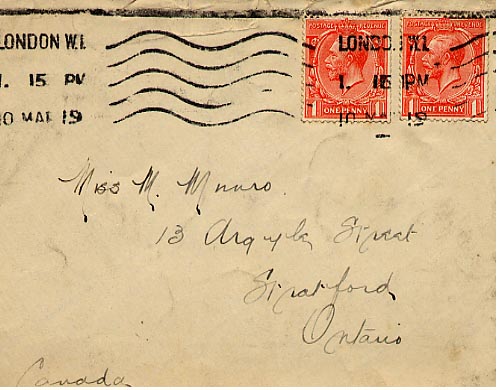 LONDON W.1.
1. 15 PM
10 MAR 19
POSTAGE REVENUE
1 ONE PENNY 1
POSTAGE REVENUE
1 ONE PENNY 1
LONDON W.1
1. 15 PM
10 MAR 19
Miss M. Munro.
13 Argyle Street
Stratford
Ontario
Canada